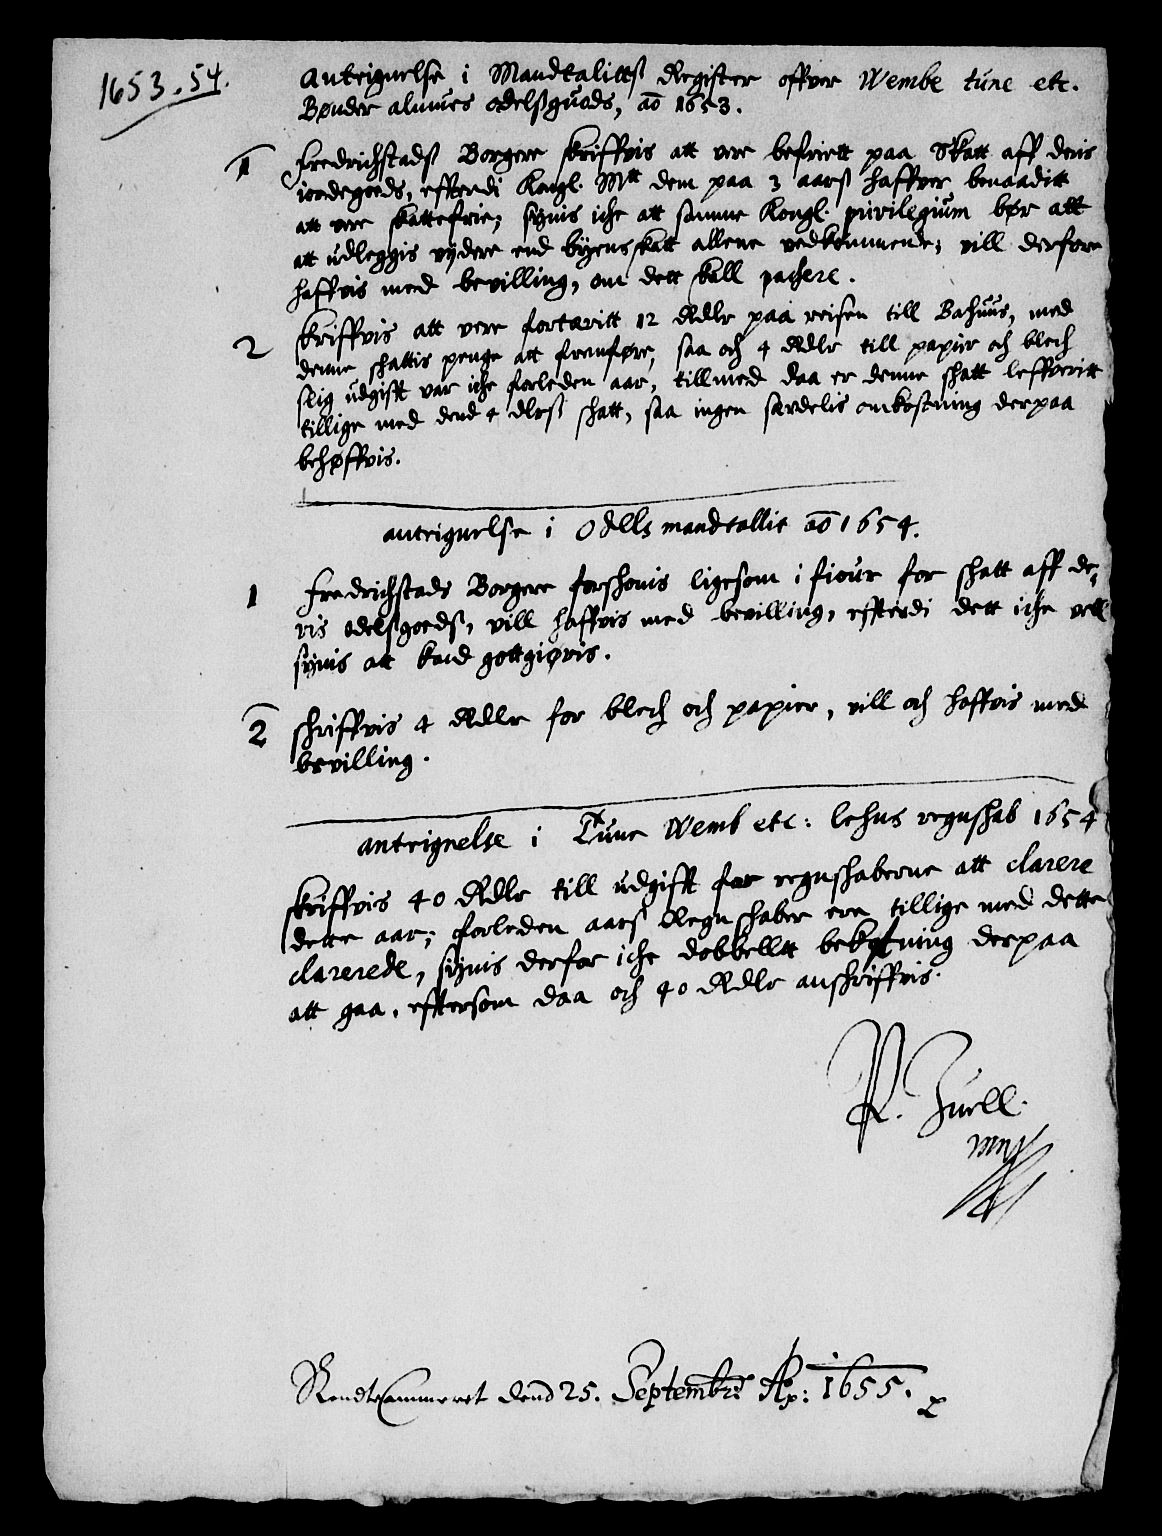 1653.54.
Anteignelse i Mandtalittß Register offver Wembe tune etc.
Bønder alunes odelßguods, ao 1653.
1 Fredrichstadß Borgere skriffvis att vere befriett paa Skatt aff deris
iordegoeds, effterdi Kongl. Mtt dem paa 3 aarß haffver benaaditt
att vere skattefrie; synis iche att samme Kongl. privilegium bør att
att udleggis vydere end byens skatt allene vedkommende; vill derfore
haffvis med bevilling, om dett skall pachere.
2 Skriffvis att vere fortæritt 12 Rdlr paa reisen till Bahuus, med
denne schattis penge att fremføre, saa och 4 Rdlr till papier och blech
slig udgifft var iche forleden aar, tillmed daa er denne schatt leffveritt
tillige med dend 4 dlrß schatt, saa ingen særdelis omkostning derpaa
behøffvis.
anteignelse i Odells mandtallit ao 1654.
1 Fredrichstads Borgere forschonis ligesom i fiour for schatt aff de-
ris odelßgoedß, vill haffvis med bevilling, effterdi dett iche vell
synis att kand gottgiøris.
2 schriffvis 4 Rdlr for blech och papier, vill och haffvis med
bevilling.
anteignelse i Tune Wemb etc: lehns regnschab 1654
skriffvis 40 Rdlr till udgifft for regnschaberne att clarere
dette aar; forleden aarß Regnschaber ere tillige med dette
clarerede, synis derfor iche dobbellt bekostning derpaa
att gaa, efftersom daa och 40 Rdlr anschriffvis.
P. Juell.
mp
RendteCammeret dend 25. Septembris Ao: 1655.